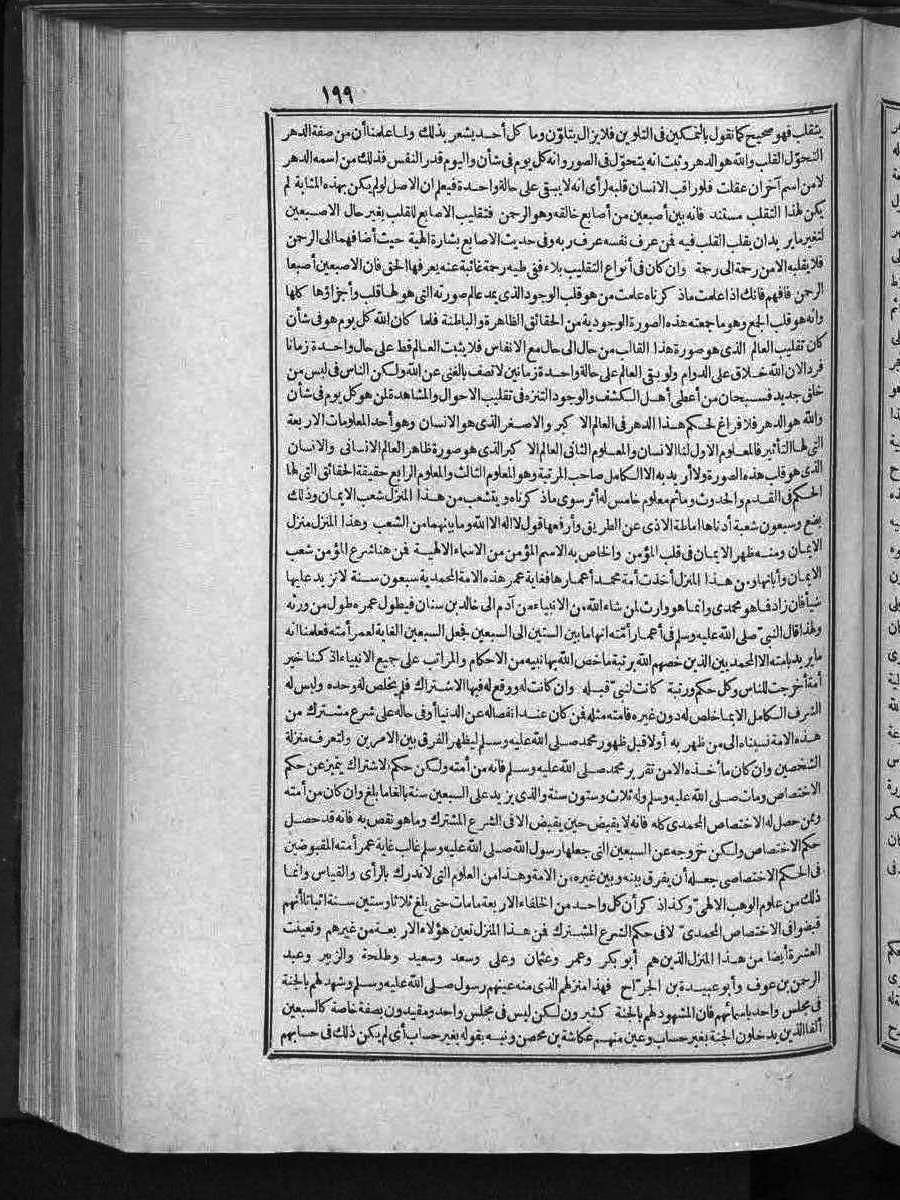 ١٩٩
يتقلب فهو صحيح كما نقول بالتمكين فى التلوين فلا يزال يتلون وما كل أحد يشعر بذلك ولما علمنا أن من صفة الدهر
التحول القلب والله هو الدهر وثبت انه يتحول فى الصور وانه كل يوم فى شأن واليوم قدر النفس فذلك من اسمه الدهر
لا من اسم آخر ان عقلت فلو راقب الانسان قلبه لرأى انه لا يبقى على حالة واحدة فيعلم ان الاصل لو لم يكن بهذه المثابة لم
يكن لهذا التقلب مستند فانه بين أصبعين من أصابع خالقه وهو الرحمن فتقليب الاصابع للقلب بغير حال الاصبعين
لتغير ما يريد ان يقلب القلب فيه فمن عرف نفسه عرف ربه وفى حديث الاصابع بشارة الهية حيث أضافهما الى الرحمن
فلا يقلبه الا من رحمة الى رحمة وان كان فى أنواع التقليب بلاء ففى طيه رحمة غائبة عنه يعرفها الحق فان الاصبعين أصبعا
الرحمن فافهم فانك اذا علمت ما ذكرناه علمت من هو قلب الوجود الذى يمد عالم صورته التى هو لها قلب وأجزاؤها كلها
وانه هو قلب الجمع وهو ما جمعته هذه الصورة الوجودية من الحقائق الظاهرة والباطنة فلما كان الله كل يوم هو فى شأن
كان تقليب العالم الذى هو صورة هذا القالب من حال الى حال مع الانفاس فلا يثبت العالم قط على حال واحدة زمانا
فردا لان الله خلاق على الدوام ولو بقى العالم على حالة واحدة زمانين لا تصف بالغنى عن الله ولكن الناس فى لبس من
خلق جديد فسبحان من أعطى أهل الكشف والوجود التنزه فى تقليب الاحوال والمشاهدة لمن هو كل يوم فى شأن
والله هو الدهر فلا فراغ لحكم هذا الدهر فى العالم الاكبر والاصغر الذى هو الانسان وهو أحد المعلومات الاربعة
التى لها التأثير فالمعلوم الاول لنا الانسان والمعلوم الثانى العالم الاكبر الذى هو صورة ظاهر العالم الانسانى والانسان
الذى هو قلب هذه الصورة ولا أريد به الا الكامل صاحب المرتبة وهو المعلوم الثالث والمعلوم الرابع حقيقة الحقائق التى لها
الحكم فى القدم والحدوث وما ثم معلوم خامس له أثر سوى ما ذكرناه ويتشعب من هذا المنزل شعب الايمان وذلك
بضع وسبعون شعبة أدناها اماطة الاذى عن الطريق وأرفعها قول لا اله الا الله وما بينهما من الشعب وهذا المنزل منزل
الايمان ومنه ظهر الايمان فى قلب المؤمن والخاص به الاسم المؤمن من الاسماء الالهية فمن هنا شرع المؤمن شعب
الايمان وأبانها ومن هذا المنزل أخذت أمة محمد أعمارها فغاية عمر هذه الامة المحمدية سبعون سنة لا تزيد عليها
شيأ فان زاد فما هو محمدى وانما هو وارث لمن شاء الله من الانبياء من آدم الى خالد بن سنان فيطول عمره طول من ورثه
ولهذا قال النبى صلى الله عليه وسلم فى أعمار أمته انها ما بين الستين الى السبعين فجعل السبعين الغاية لعمر أمته فعلمنا انه
ما يريد بامته الا المحمديين الذين خصهم الله برتبة ما خص الله بها نبيه من الاحكام والمراتب على جميع الانبياء اذ كنا خير
أمة أخرجت للناس وكل حكم ورتبة كانت لنبى قبله وان كانت له ووقع له فيها الاشتراك فلم يخلص له وحده وليس له
الشرف الكامل الا بما خلص له دون غيره فامته مثله فمن كان عند انفصاله عن الدنيا أو فى حاله على شرع مشترك من
هذه الامة نسبناه الى من ظهر به أولا قبل ظهور محمد صلى الله عليه وسلم ليظهر الفرق بين الامرين ولتعرف منزلة
الشخصين وان كان ما أخذه الا من تقرير محمد صلى الله عليه وسلم فانه من أمته ولكن حكم الاشتراك يتميز عن حكم
الاختصاص ومات صلى الله عليه وسلم وله ثلاث وستون سنة والذى يزيد على السبعين سنة بالغا ما بلغ وان كان من أمته
وممن حصل له الاختصاص المحمدى كله فانه لا يقبض حين يقبض الا فى الشرع المشترك وما هو نقص به فانه قد حصل
حكم الاختصاص ولكن خروجه عن السبعين التى جعلها رسول الله صلى الله عليه وسلم غالب غاية عمر أمته المقبوضين
فى الحكم الاختصاصى جعله أن يفرق بينه وبين غيره من الامة وهذا من العلوم التى لا تدرك بالرأى والقياس وانما
ذلك من علوم الوهب الالهى وكذا ذكر أن كل واحد من الخلفاء الاربعة ما مات حتى بلغ ثلاثا وستين سنة اثباتا أنهم
قبضوا فى الاختصاص المحمدى لا فى حكم الشرع المشترك فمن هذا المنزل تعين هؤلاء الاربعة من غيرهم وتعينت
العشرة أيضا من هذا المنزل الذين هم أبو بكر وعمر وعثمان وعلى وسعد وسعيد وطلحة والزبير وعبد
الرحمن بن عوف وأبو عبيدة بن الجراح فهذا منزلهم الذى منه عينهم رسول صلى الله عليه وسلم وشهد لهم بالجنة
فى مجلس واحد باسمائهم فان المشهود لهم بالجنة كثيرون لكن ليس فى مجلس واحد ومقيدون بصفة خاصة كالسبعين
ألفا الذين يدخلون الجنة بغير حساب وعين منهم عكاشة بن محصن ونبه بقوله بغير حساب أى لم يكن ذلك فى حسابهم